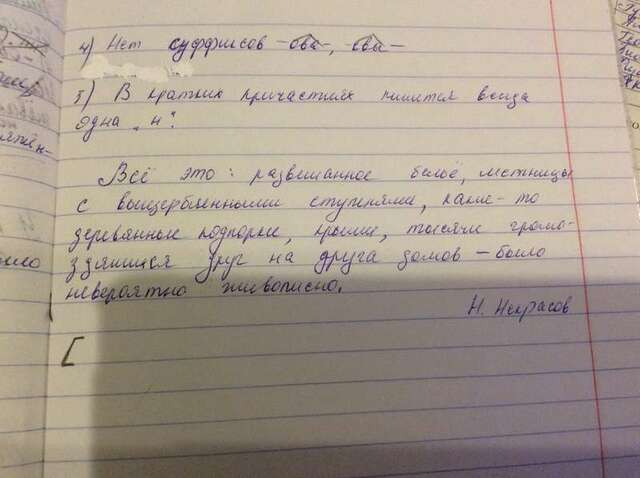 4) Нет суффисов -ова-, -ева-
5) В кратких причастиях пишется всегда
одна „н".
Всё это: развешанное бельё, лестницы
с выщербленными ступенями, какие-то
деревянные подпорки, крыши, тысячи громо-
здящихся друг на друга домов - было
невероятно живописно.
Н. Некрасов
[